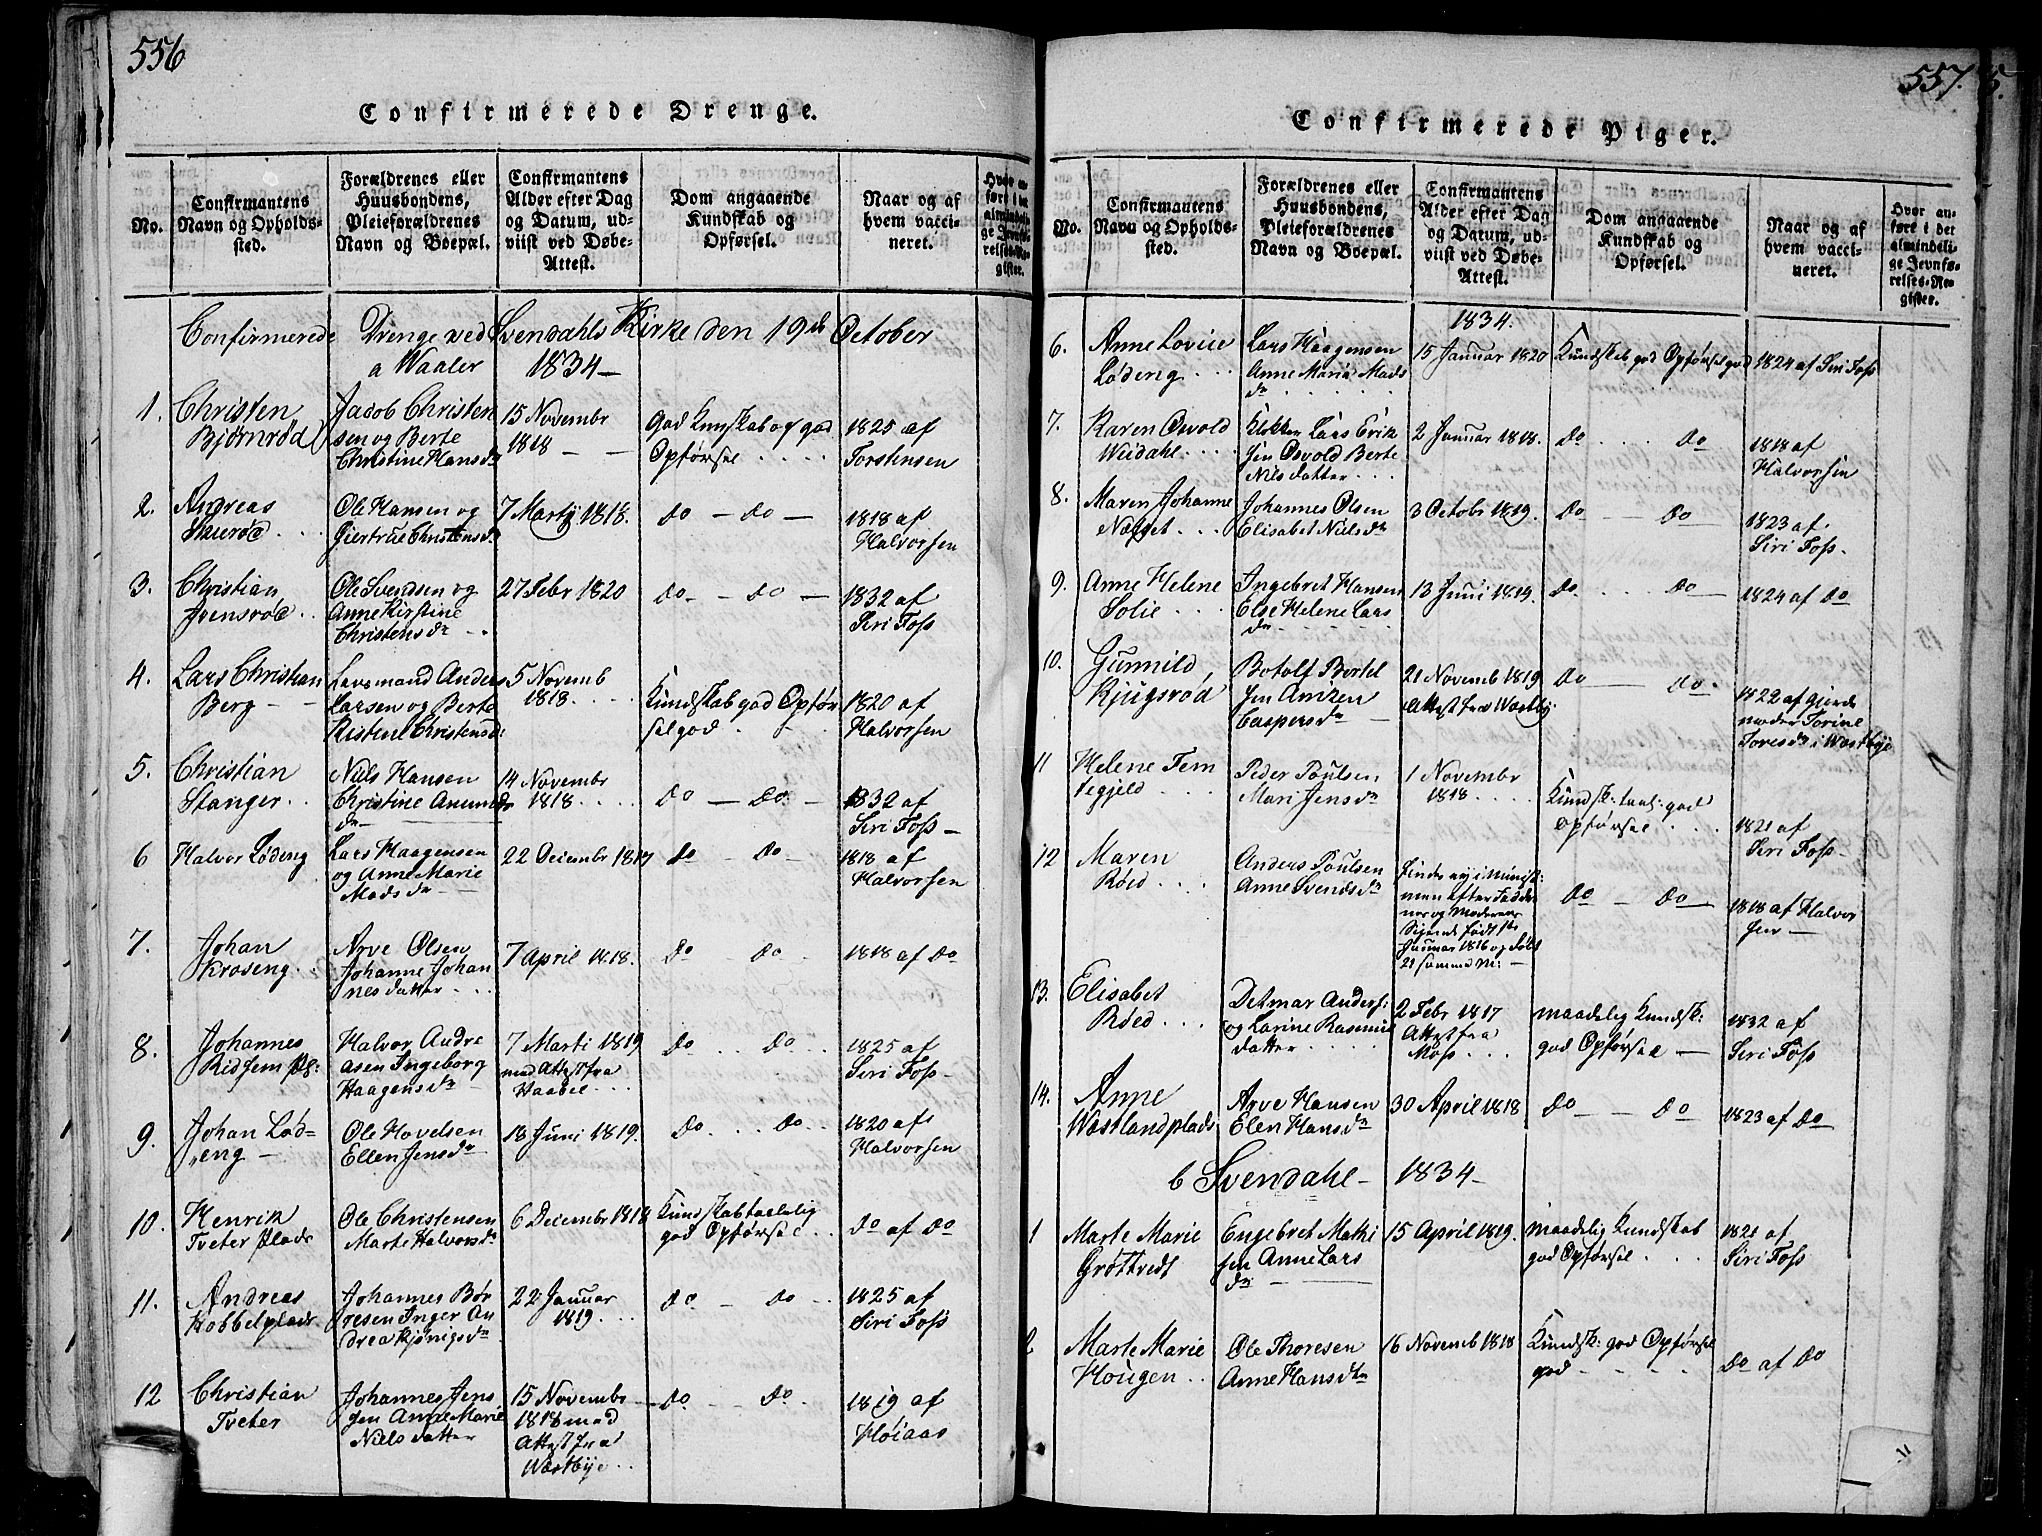 556
Confirmerede Drenge.
No.
Confirmantens
Navn og Opholds-
sted.
Forældrenes eller
Huusbondens,
Pleieforældrenes
Navn og Boepæl.
Confirmantens
Alder efter Dag
og Datum, ud-
viist ved Døbe-
Attest.
Dom angaaende
Kundskab og
Opførsel.
Naar og af
hvem vacci-
neret.
Hvor an-
ført i det
almindeli-
ge Jevnfø-
relses-Re-
gister.
Confirmerede Drenge ved Svendahls Kirke den 19de October
a Waaler 1834 —
1. Christen
Bjørnrød
Jacob Christen
sen og Berte
Christine Hansdr
15 Novembr
1818 — —
God Kunskab og god
Opførsel . . . .
1825 af
Torstensen
2. Andreas
Skierød . . .
Ole Hansen og
Giertrue Christensdr
7 Marty 1818.
do — do —
1818 af
Halvorsen
3. Christian
Ivensrød . .
Ole Svendsen og
Anne Kirstine
Christensdr . .
27 Febr 1820
do — do —
1832 af
Siri Foss
4. Lars Christian
Berg — —
Lensmand Anders
Larsen og Berte
Kistine Christensd:
5 Novemb
1818 . . . .
Kundskab god Opfør
sel god . . .
1820 af
Halvorsen
5. Christian
Stanger . .
Niels Hansen
Christine Amunds
dr —
14 Novembr
1818 . . . .
do — do —
1832 af
Siri Foss —
6 Halvor Lødeng
Lars Haagensen
og Anne Marie
Madsdr —
22 Decembr 1817
do — do —
1818 af
Halvorsen
7. Johan
Kroseng . .
Arve Olsen
Johanne Johan
nesdatter . . .
7 April 1818.
do do —
1818 af do
8. Johannes
Kidsem pl:
Halvor Andre
asen Ingeborg
Haagensdr —
7 Marti 1819
med Attest fra
Haabøl . . .
do . . do . .
1825 af
Siri Foss
9. Johan Lød=
eng —
Ole Hovelsen
Ellen Jensdr
18 Juni 1819.
do . . . do . .
1820 af
Halvorsen
10. Henrik
Tveter Plads
Ole Christensen
Marte Halvorsdr
6 Decembr 1818
Kundskab taalelig
god Opførsel . .
do af do
11. Andreas
Kobbelplads
Johannes Bør
resen Inger An
drea Kjønigsdr
22 Januar
1819 . . .
do — do — .
1825 af
Siri Foss
12 Christian
Tveter
Johannes Jens
sen Anne Marie
Nielsdatter
15 Novembr
1818 med
Attest fra
Westbye . .
do — — do . .
1819 af
Høiaas
557.
5.
Confirmerede Piger.
No.
Confirmantens
Navn og Opholds-
sted.
Forældrenes eller
Huusbondens,
Pleieforældrenes
Navn og Boepæl.
Confirmantens
Alder efter Dag
og Datum, ud-
viist ved Døbe-
Attest.
Dom angaaende
Kundskab og
Opførsel.
Naar og af
hvem vacci-
neret.
Hvor an-
ført i det
almindeli-
ge Jevnfø-
relses-Re-
gister.
1834.
6. Anne Lovise
Lødeng . . .
Lars Haagensen
Anne Maria Mads
dr . . . . . .
15 Januar 1820
Kundskab god Opførsel god
1824 af Siri Foss
7. Karen Osvold
Weidahl . . .
Klokker Lars Erik
sen Osvold Berte
Nilsdatter . . .
2 Januar 1818.
do . . . . do
1818 af
Halvorsen
8. Maren Johanne
Næsset . . .
Johannes Olsen
Elisabet Nielsdr
3 Octobr 1819.
do — — do
1823 af
Siri Foss.
9. Anne Helene
Solie . . .
Ingebret Hansen
Else Helene Lars
dr . . . . .
13 Juni 1819.
do . . . . do —
1824 af do
10. Gunnild
Kjugsrød
Botolf Bertel
sen
Caspersdr —
21 Novemb 1819
Attest fra Westby
do — do .
1822 af Gjorde
moder Torine
Toresdr i Westbye
11 Helene Fem
tegjeld . . . .
Peder Poulsen
Mari Jensdr
1 Novembr
1818 . . . .
Kundsk: taal: god
Opførsel . . . .
1821 af
Siri Foss —
12 Maren
Røed . . .
Anders Poulsen
Anne Svendsdr
findes ey i Minist:
men efter Fadder
nes og Moderens
Sigende født 1ste
Januar 1816 og døbt
21 samme M: —
do — do —
1818 af Halvor
sen —
13. Elisabet
Røed . . .
Detmar Anders:
og Larine Rasmus
datter . . . . .
2 Febr 1817
Attest fra
Moss . . .
maadelig Kundsk:
god Opførsel —
1832 af
Siri Foss
14. Anne
Westlandplads
Arve Hansen
Elen Hansdr
30 April 1818
do — — do
1823 af do
b Svendahl — 1834 —
1 Marte Marie
Grøttvedt
Engebret Mathi
sen Anne Lars
dr — —
15 April 1819.
maadelig Kundskab
god Opførsel . . .
1821 af
Siri Foss
2 Marte Marie
Hougen . .
Ole Thoresen
Anne Hansdtr
16 Novemb 1818
Kundsk: god Opførsel
god — — — —
do af do